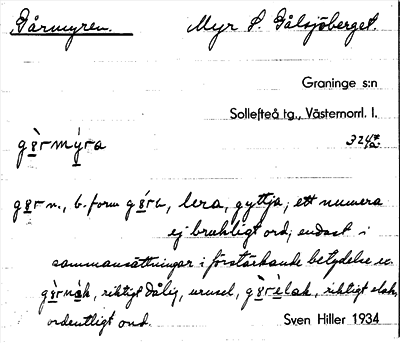 Gårmyren. Myr S. Gålsjöberget.
Graninge s:n
Sollefteå tg., Västernorrl. l.
gɵ̀rmýra
gɵr n., b. form gɵ́rə, lera, gyttja; ett numera
ej brukligt ord; endast i
sammansättningar i förstärkande betydelse ss.
riktigt dålig, urusel, riktigt elak,
ordentligt ond. Sven Hiller 1934